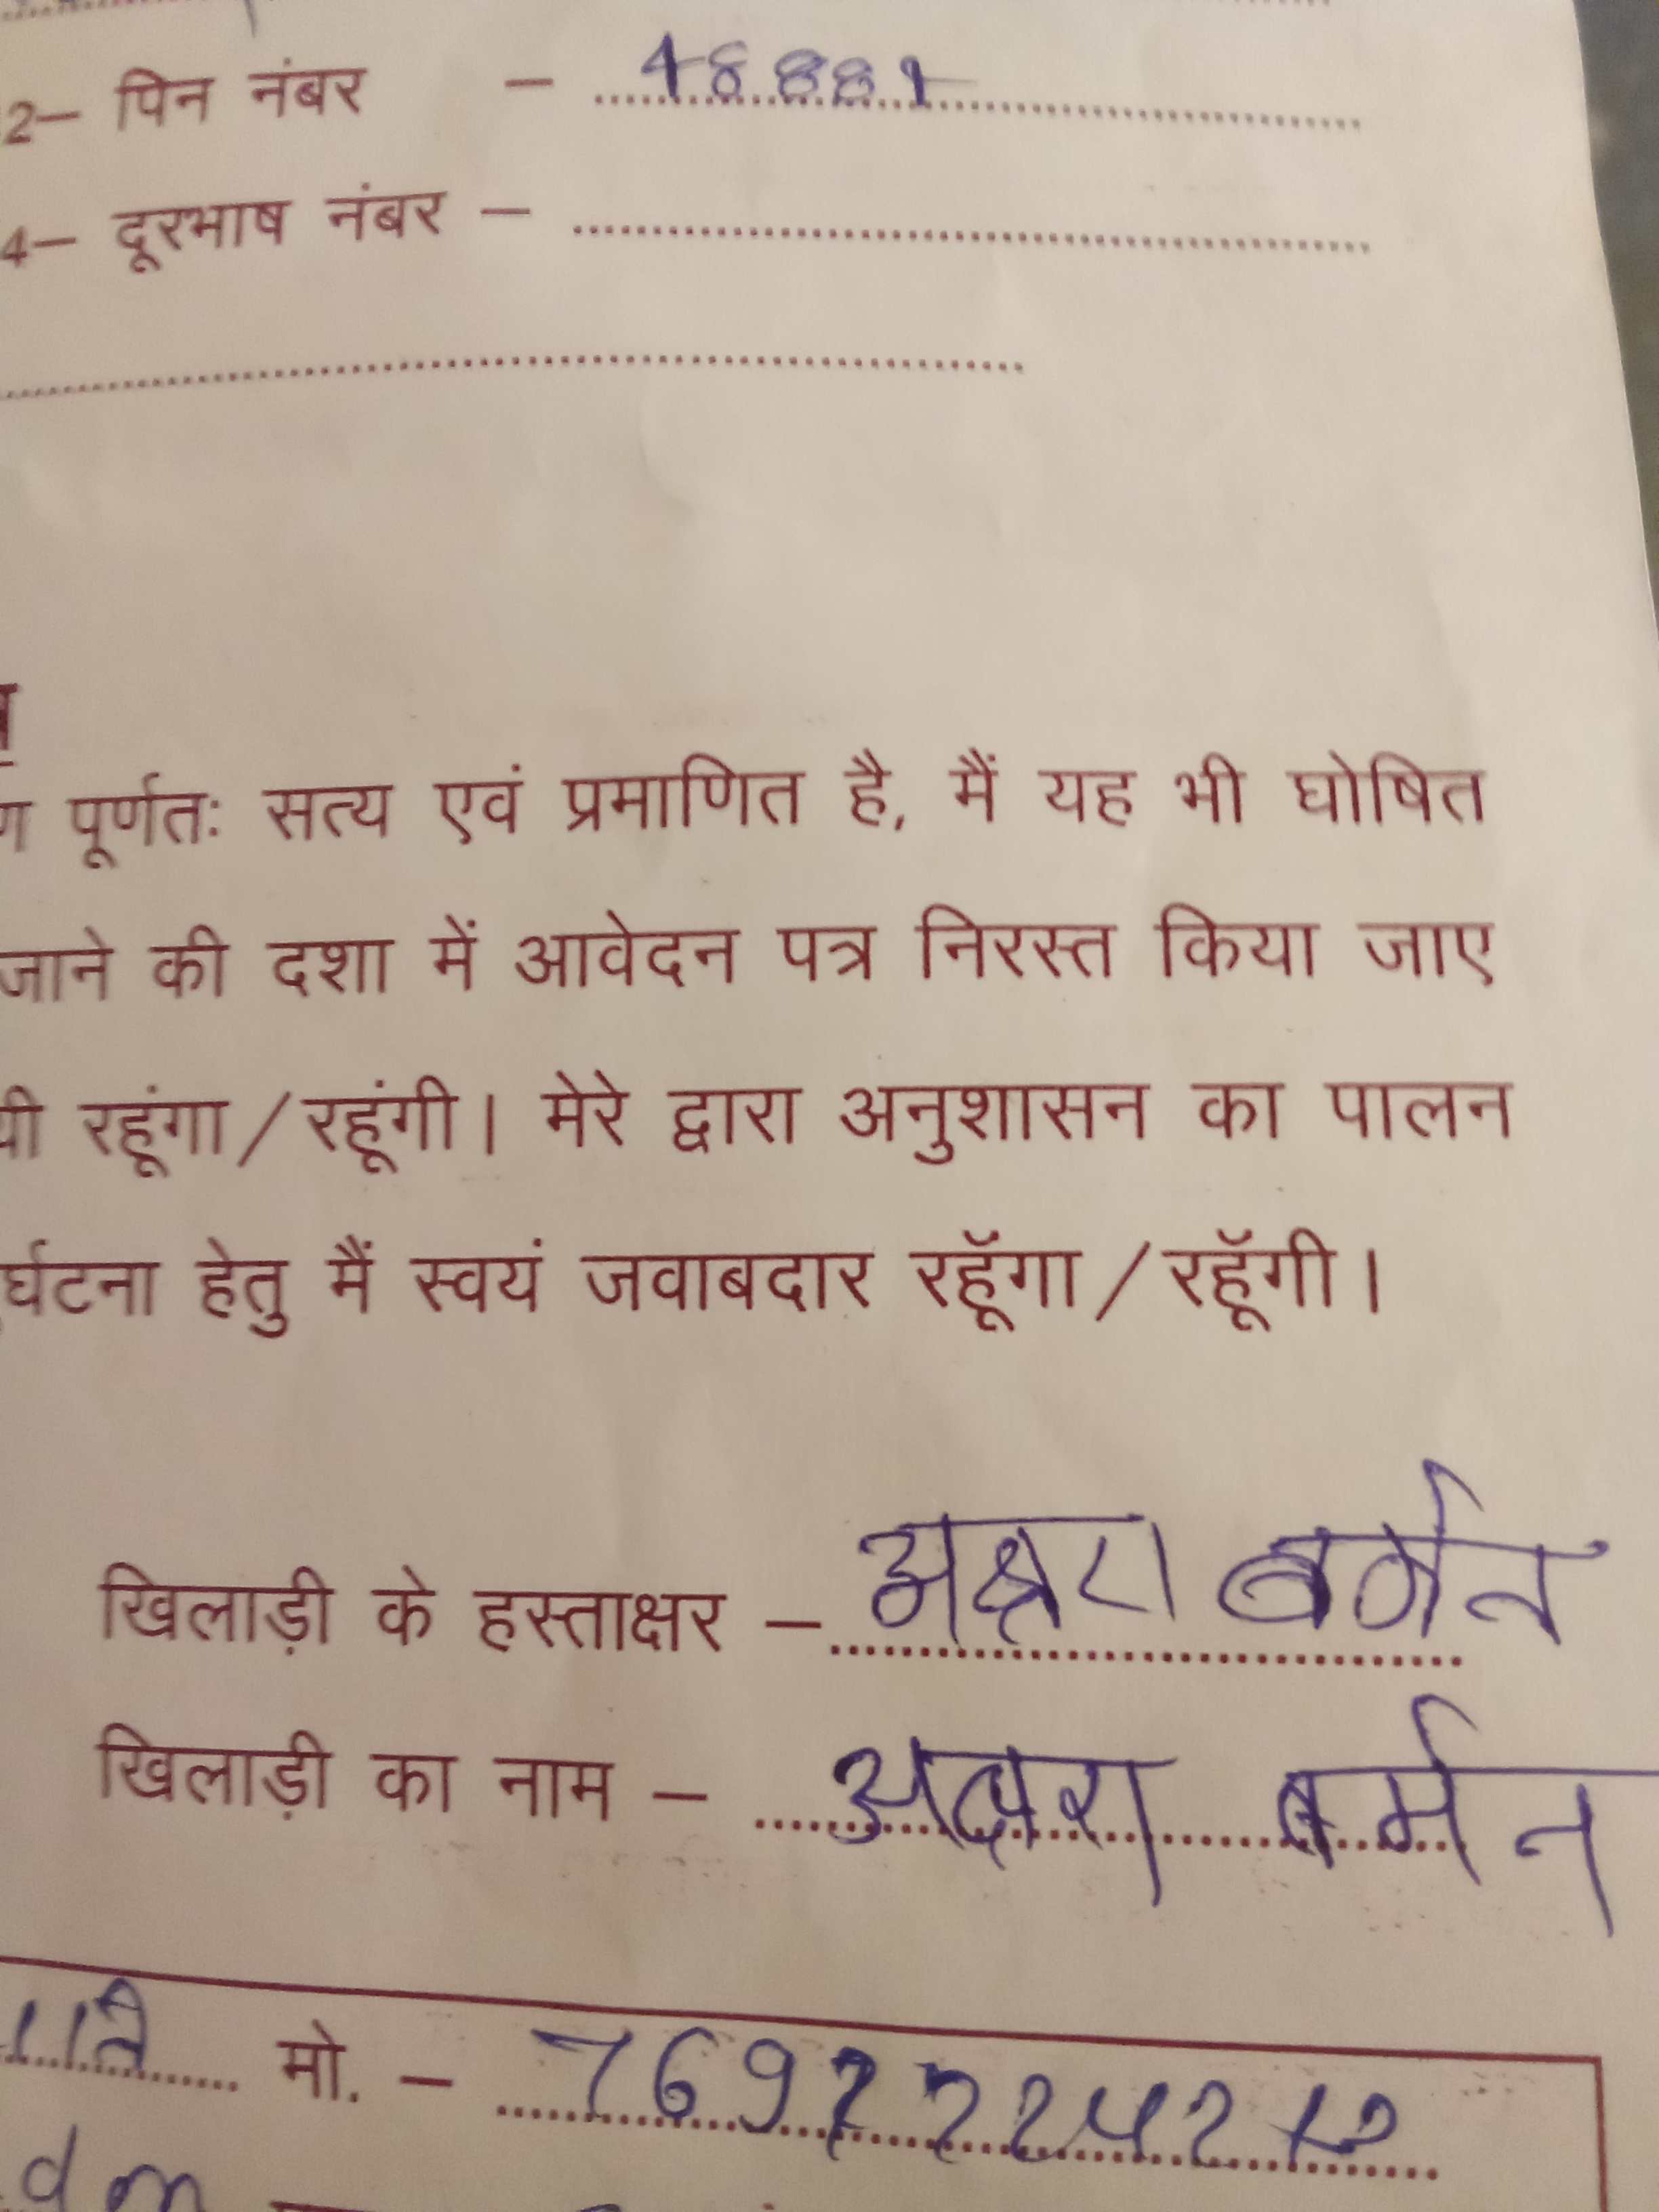 2– पिन नंबर –
4– दूरभाष नंबर –
पूर्णतः सत्य एवं प्रमाणित है, मैं यह भी घोषित
जाने की दशा में आवेदन पत्र निरस्त किया जाए
रहूंगा/रहूंगी। मेरे द्वारा अनुशासन का पालन
र्घटना हेतु मैं स्वयं जवाबदार रहूॅगा/रहूॅगी।
खिलाड़ी के हस्ताक्षर – अक्षरा बर्मन
खिलाड़ी का नाम – अक्षरा बर्मन
मो. –